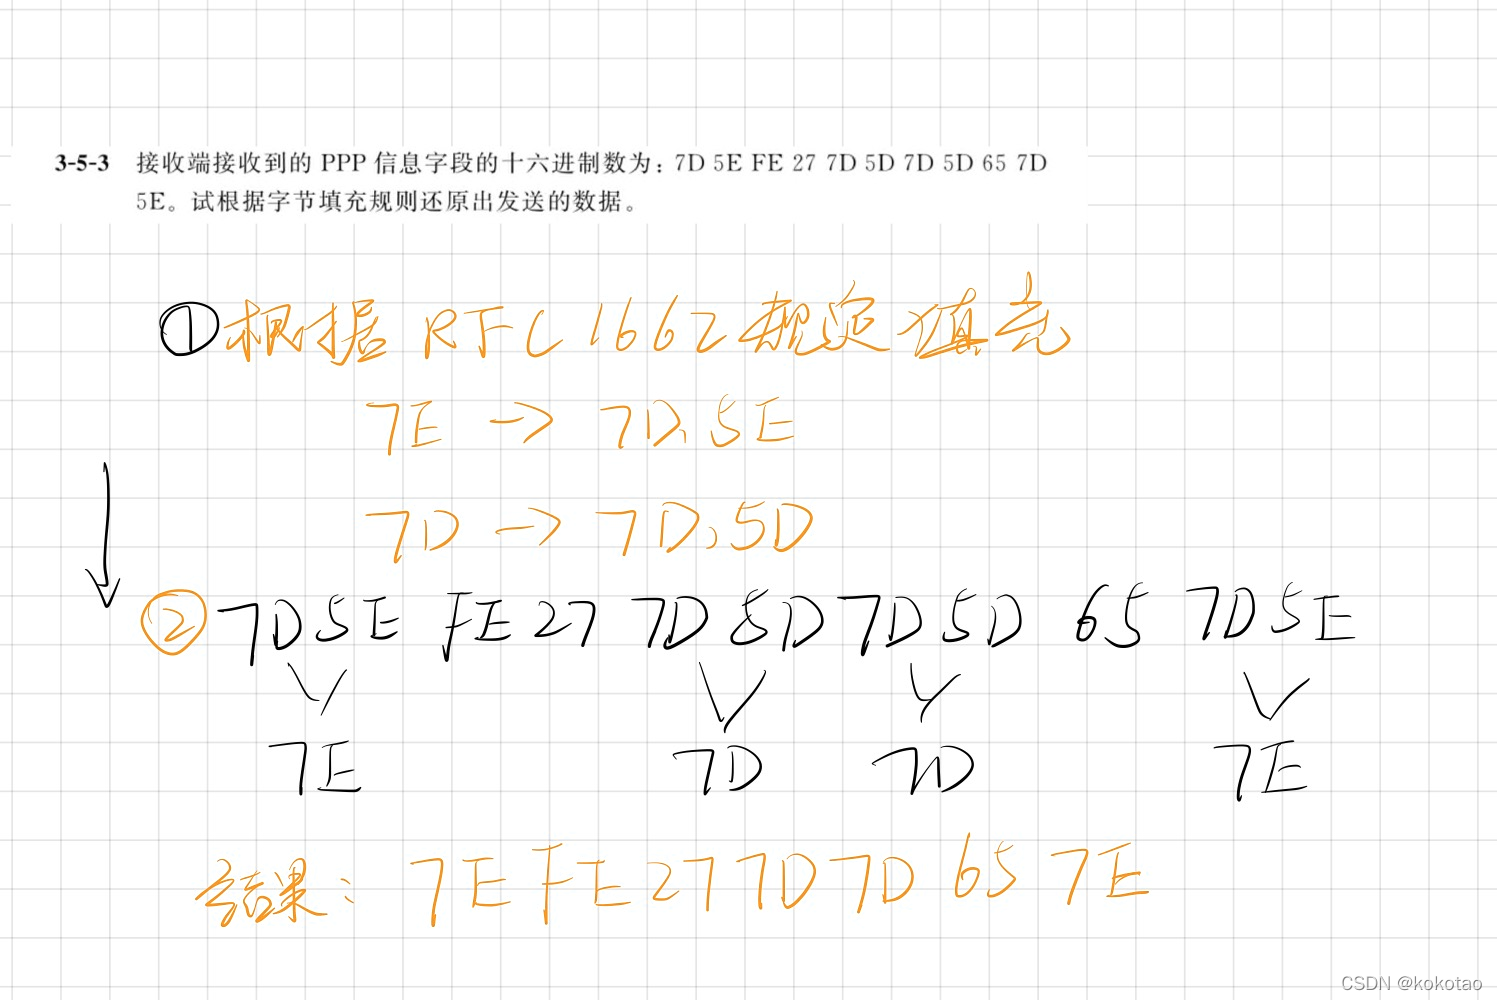 3-5-3 接收端接收到的 PPP 信息字段的十六进制数为：7D 5E FE 27 7D 5D 7D 5D 65 7D
5E。试根据字节填充规则还原出发送的数据。
①根据 RFC 1662 规定填充
7E → 7D,5E
7D → 7D,5D
② 7D 5E FE 27 7D 5D 7D 5D 65 7D 5E
7E 7D 7D 7E
结果：7E FE 27 7D 7D 65 7E
CSDN @kokotao